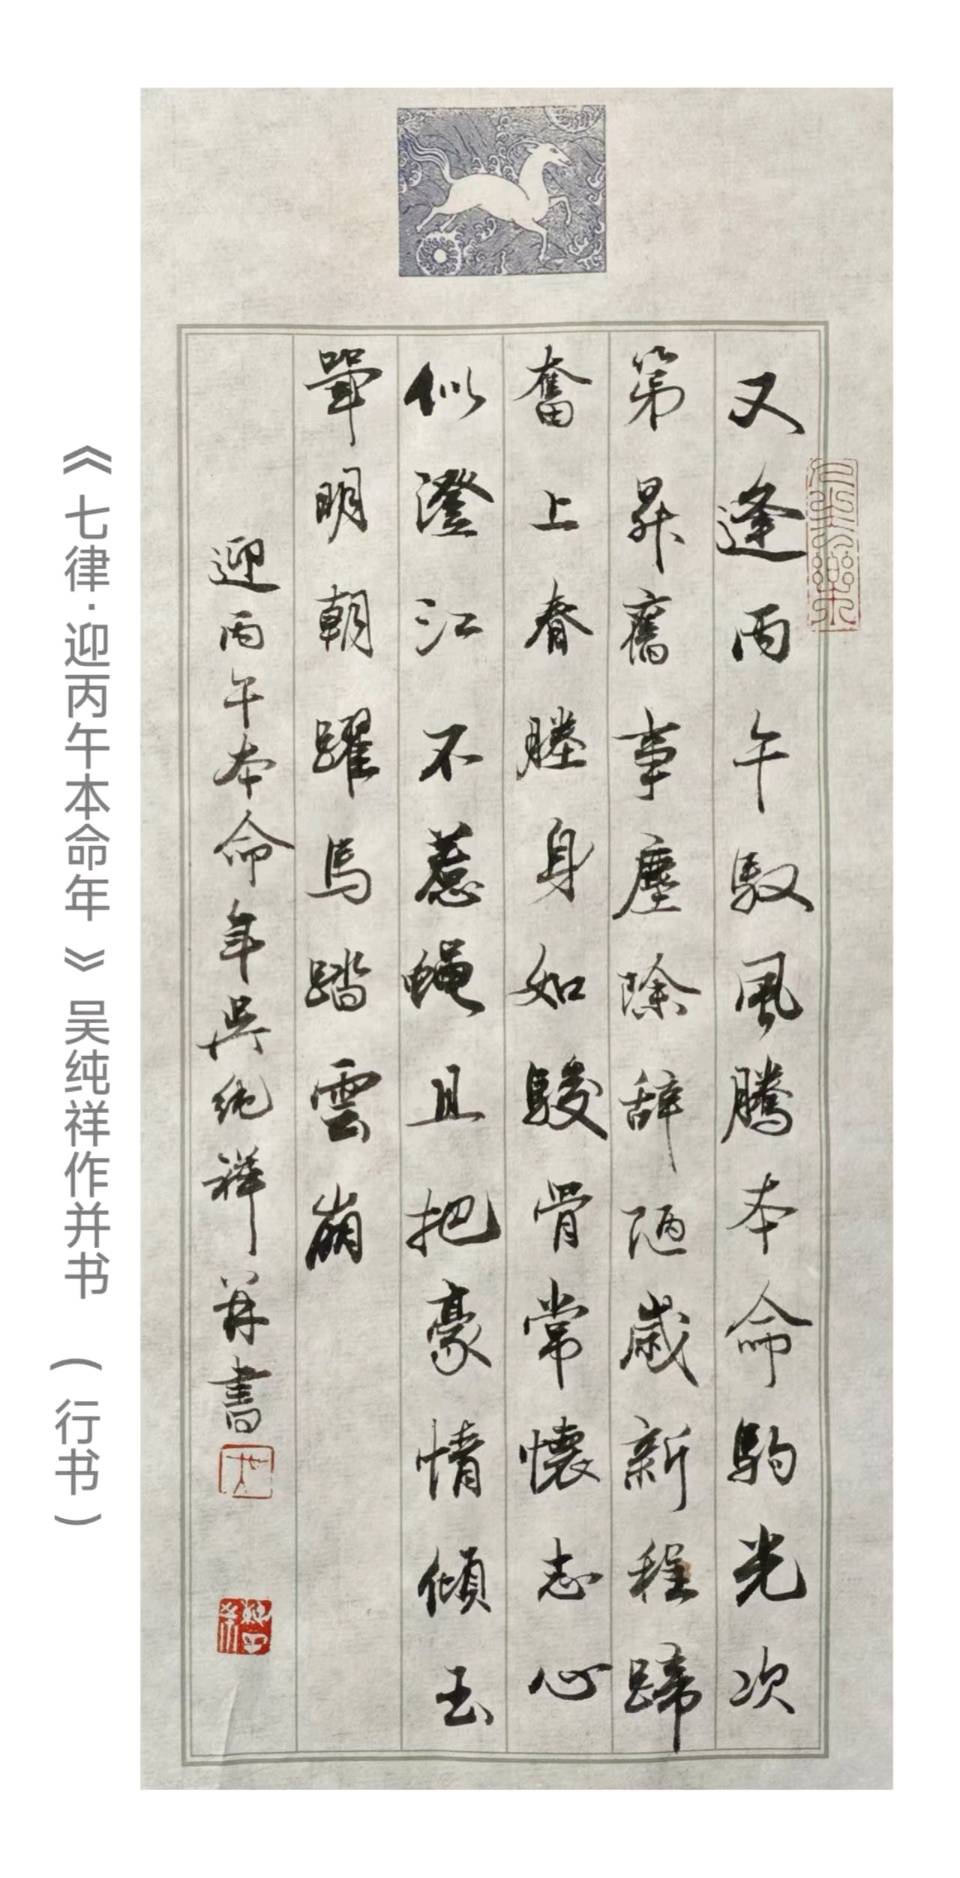 又逢丙午馭風騰本命駒光次
第昇舊事塵除辞陋歲新程蹄
奮上春塍身如駿骨常懷志心
似澄江不惹蝇且把豪情傾玉
斝明朝躍馬踏雲崩
迎丙午本命年吳純祥并書
《七律·迎丙午本命年》吴纯祥作并书（行书）